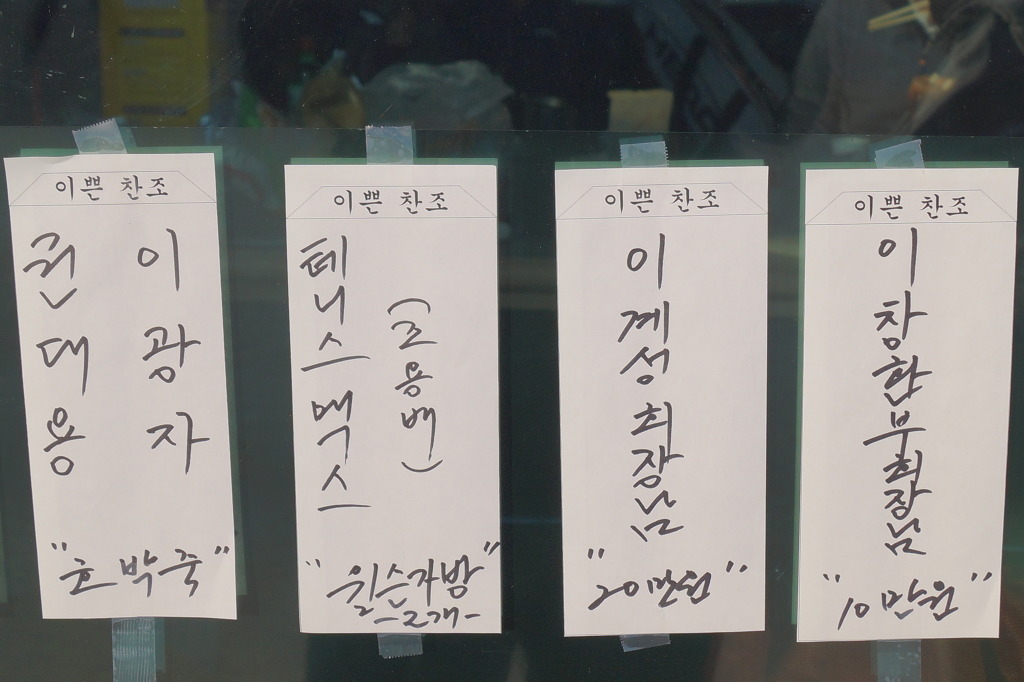 이쁜 찬조
권대용
이광자
"호박죽"
이쁜 찬조
테니스맥스
(조용배)
"윌슨가방
-2개-"
이쁜 찬조
이계성회장님
"20만원"
이쁜 찬조
이창환부회장님
"10만원"